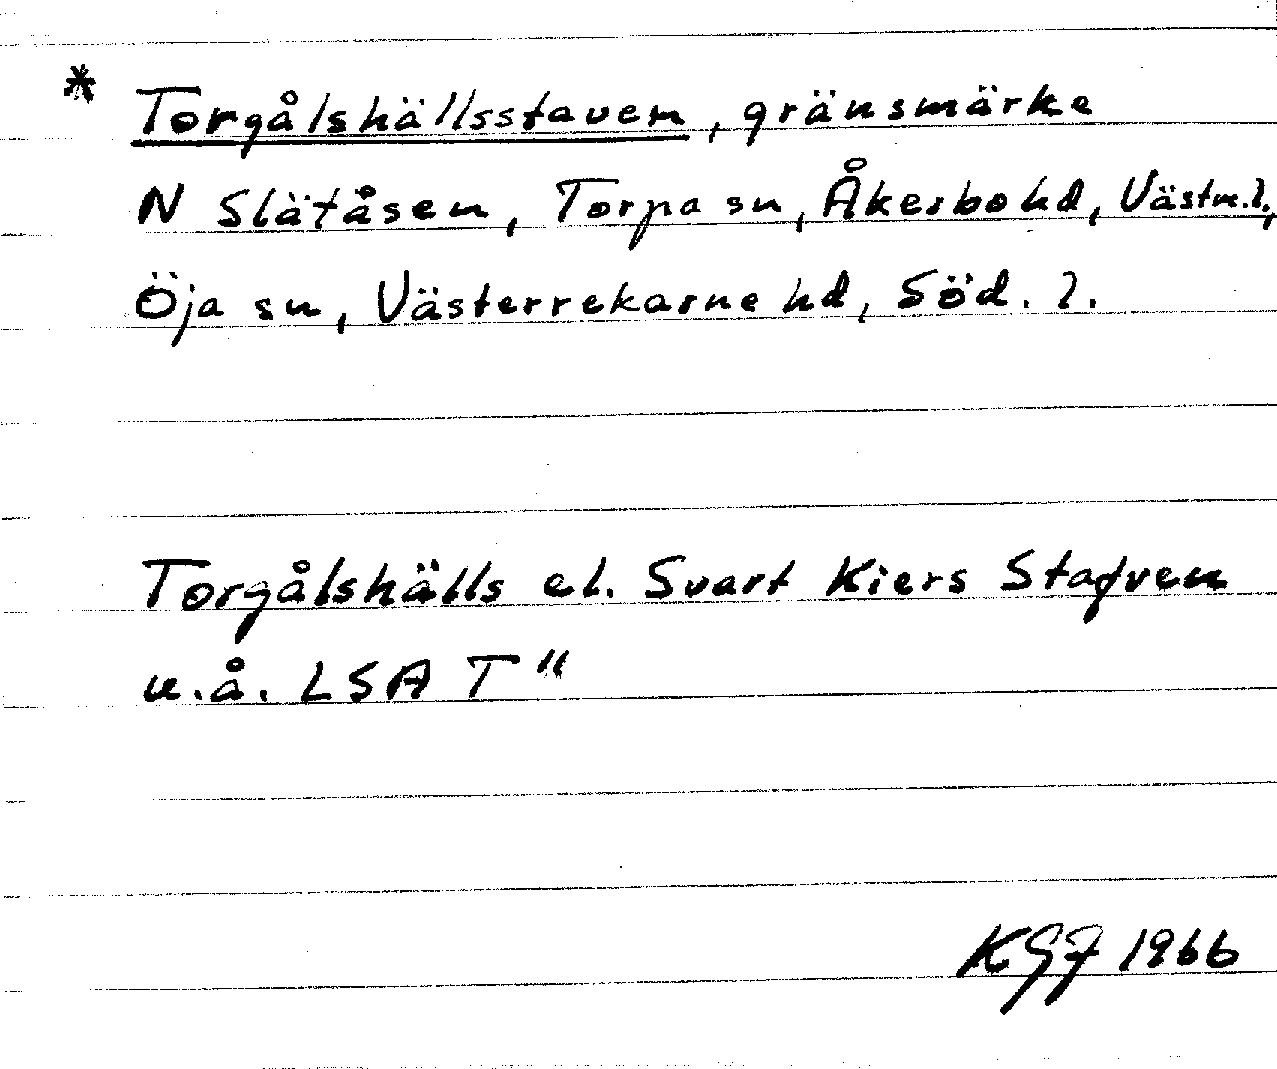 * Torgålshällsstaven, gränsmärke
N Slätåsen, Torpa sn, Åkerbo hd, Västm.l.,
Öja sn, Västerrekarne hd, Söd. l.
Torgålshälls el. Svart Kiers Stafven
u.å. LSA T"
KGF 1966